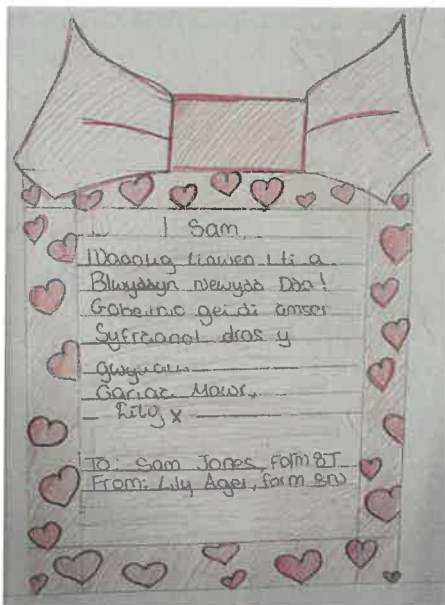 I Sam,
Nadolig Llawen i ti a
Blwyddyn Newydd Dda!
Gobeithio gei di amser
Syfrdanol dros y
gwyliau
Cariad Mawr,
Lily x
To: Sam Jones, Form 8T
From: Lily Ager, form 8N